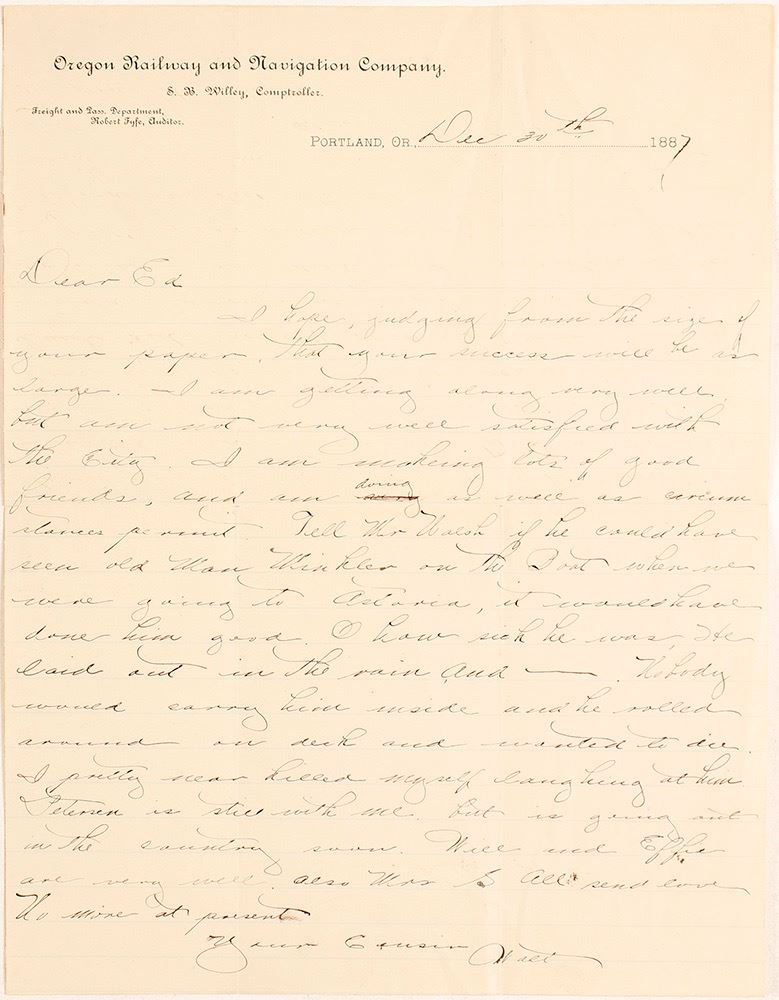 Oregon Railway and Navigation Company.
S. B. Willey, Comptroller.
Freight and Pass. Department,
Robert Fyfe, Auditor.
PORTLAND, OR., Dec 30th 1887
Dear Ed
I hope, judging from the size of
your paper, that your success will be as
large. I am getting along very well
but am not very well satisfied with
the City. I am making lots of good
friends, and am doing as well as circum
stances permit. Tell Mr Walsh if he could have
seen old Man Winkler on the Boat when we
were going to Astoria, it would have
done him good. O how sick he was, He
laid out in the rain and ——. Nobody
would carry him inside and he rolled
around on deck and wanted to die.
I pretty near killed myself laughing at him
Petersen is still with me but is going out
in the country soon. Will and Effie
are very well. also Mrs S All send love
No more at present
Your Cousin Walt